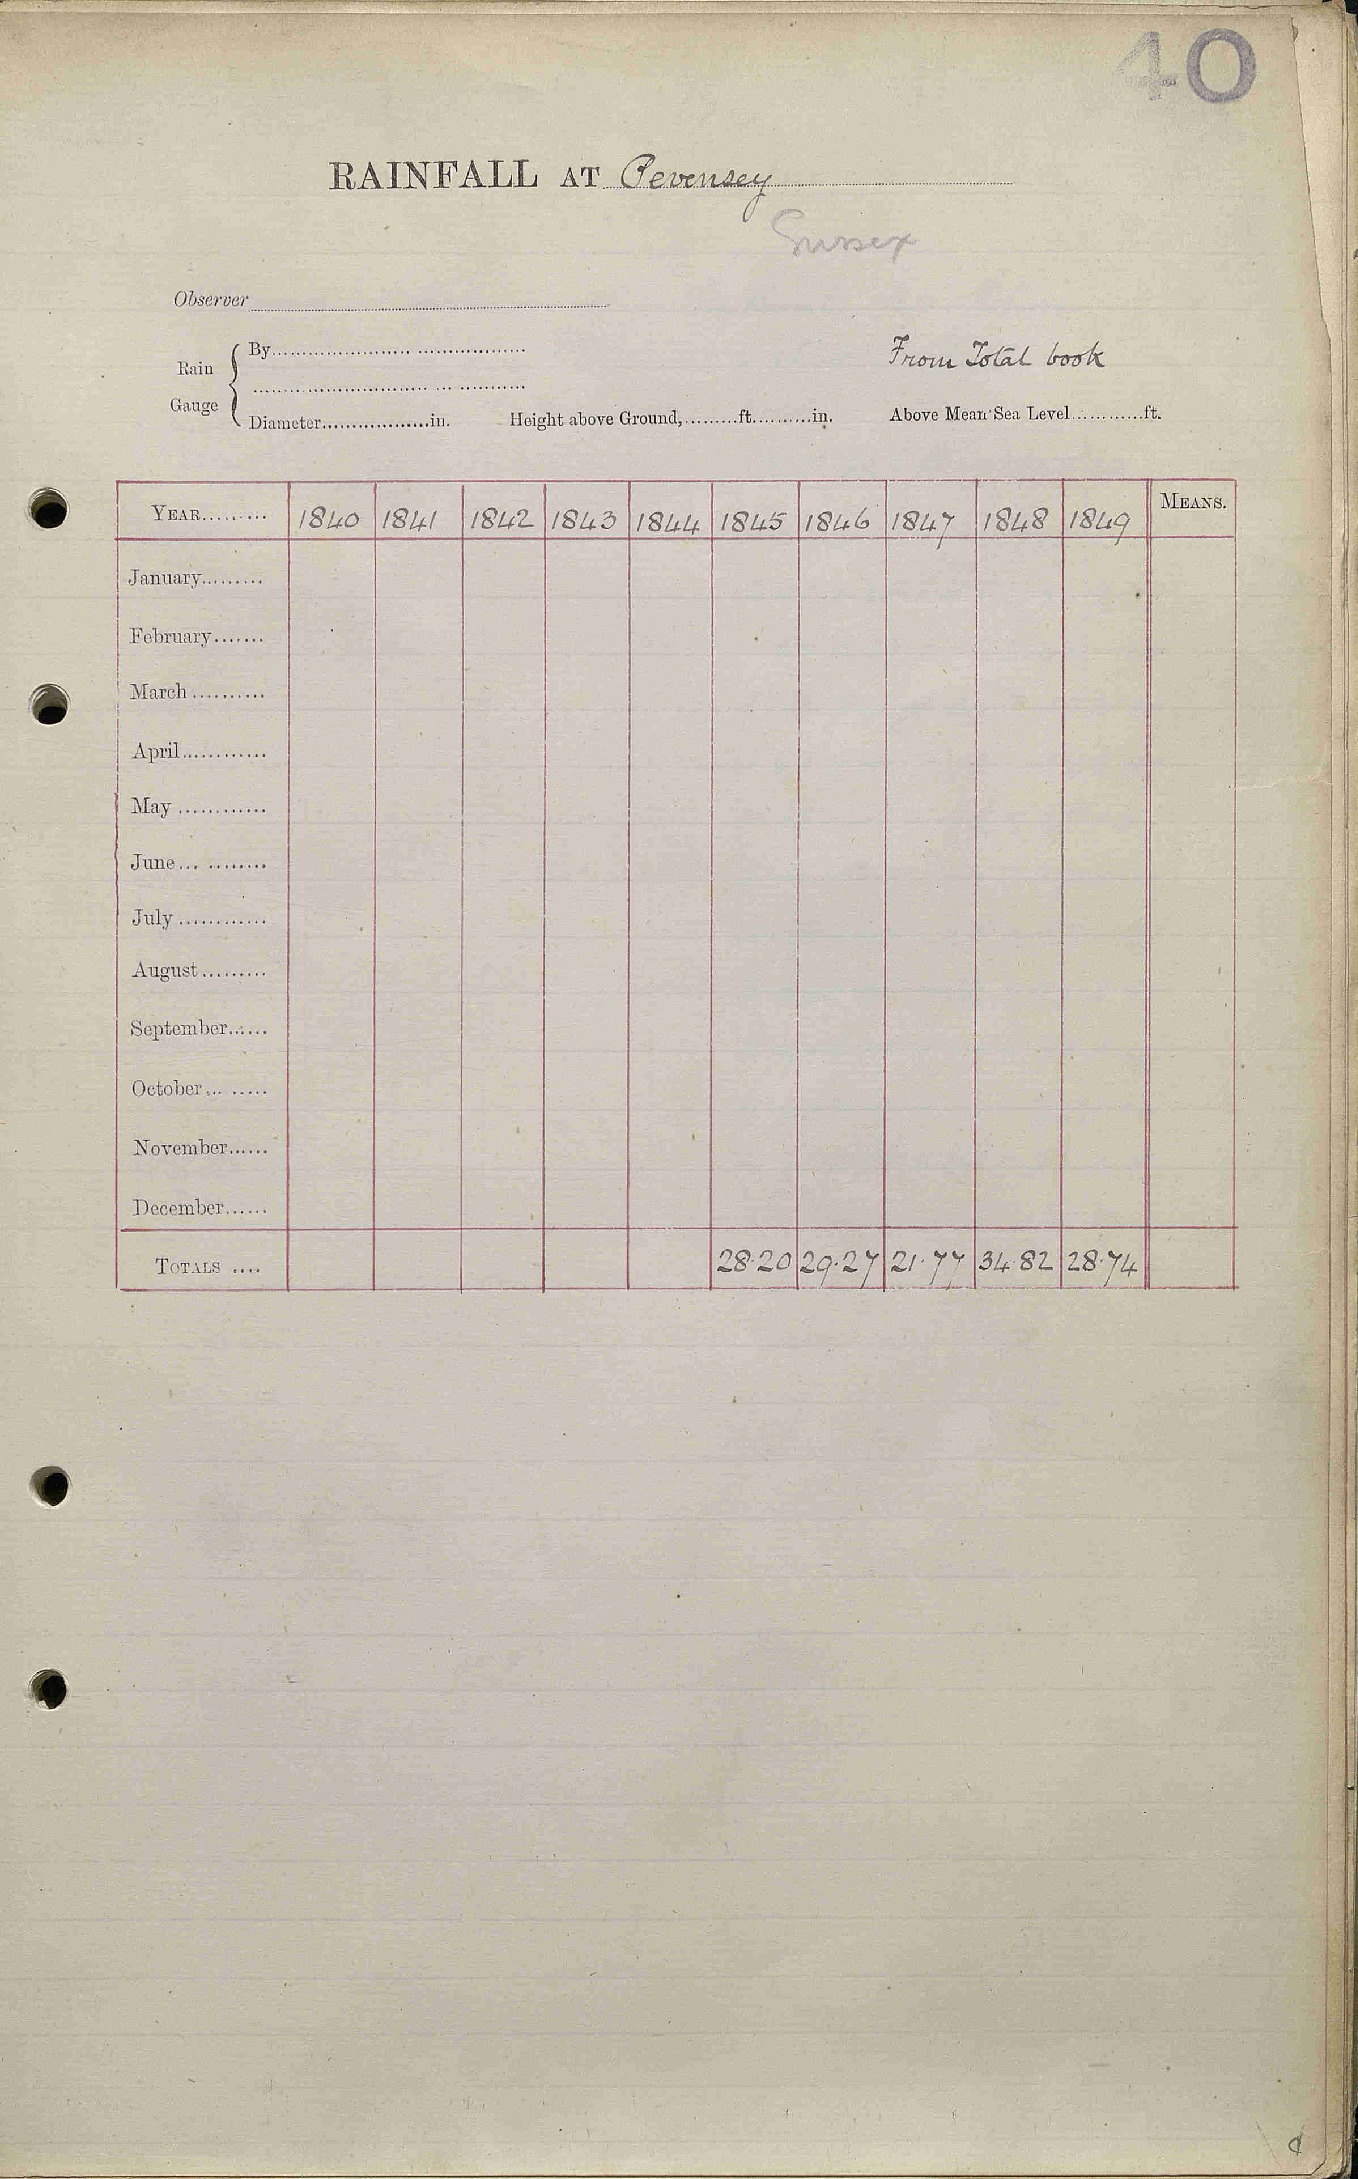 40
RAINFALL AT Pevensey
Sussex
Observer
Rain Gauge
By
From Total book
Diameter in. Height above Ground, ft. in. Above Mean Sea Level ft.
YEAR 1840 1841 1842 1843 1844 1845 1846 1847 1848 1849 MEANS.
January
February
March
April
May
June
July
August
September
October
November
December
TOTALS 28.20 29.27 21.77 34.82 28.74